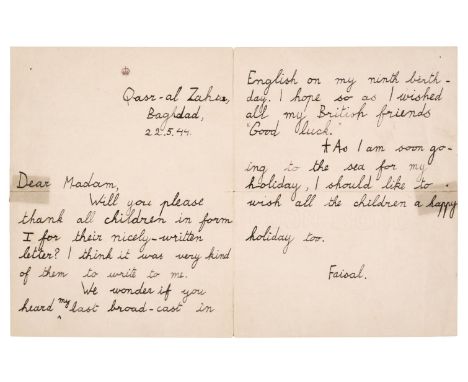 Qasr-al Zahur,
Baghdad,
22.5.44.
Dear Madam,
Will you please
thank all children in form
I for their nicely-written
letter? I think it was very kind
of them to write to me.
We wonder if you
heard my last broad-cast in
English on my ninth berth-
day. I hope so as I wished
all my British friends
"Good luck."
As I am soon go-
ing to the sea for my
holiday, I should like to
wish all the children a happy
holiday too.
Faisal.